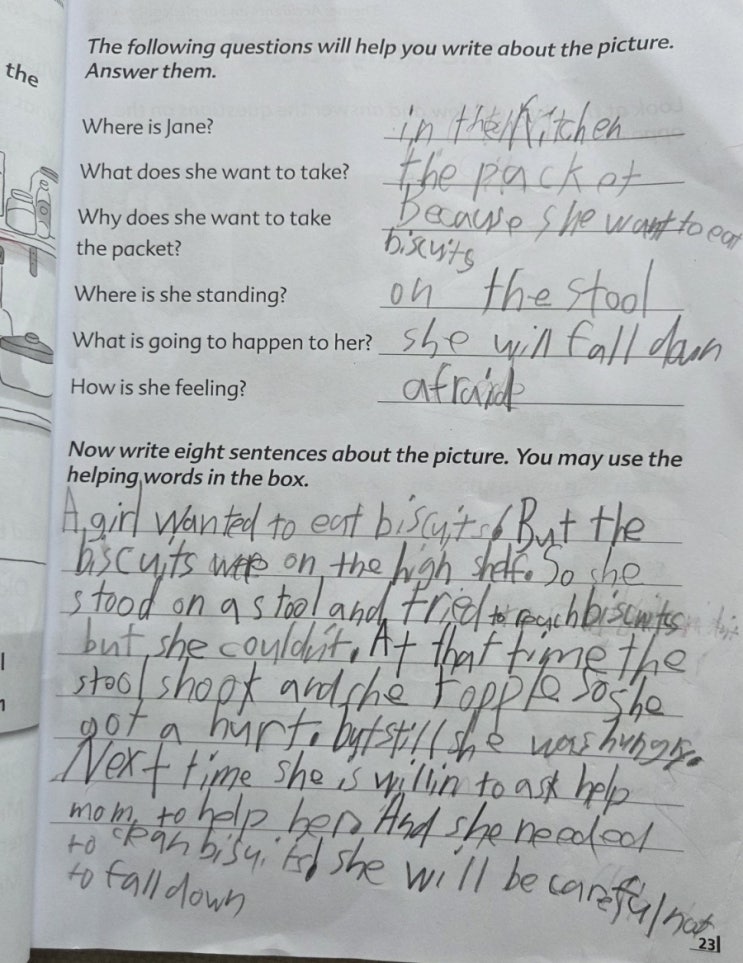 The following questions will help you write about the picture.
the
Answer them.
Where is Jane? in the kitchen
What does she want to take? the packet
Why does she want to take Because she want to eat
the packet? biscuits
Where is she standing? on the stool
What is going to happen to her? she will fall down
How is she feeling? afraid
Now write eight sentences about the picture. You may use the
helping words in the box.
A girl wanted to eat biscuits. But the
biscuits were on the high shelf. So she
stood on a stool and tried to reych biscuits
but she couldn't. At that time the
stool shook and she topple So she
got a hurt. but still she was hungry.
Next time she is willin to ask help
mom to help her. And she needed
to clean bisuits she will be careful not
to fall down
23